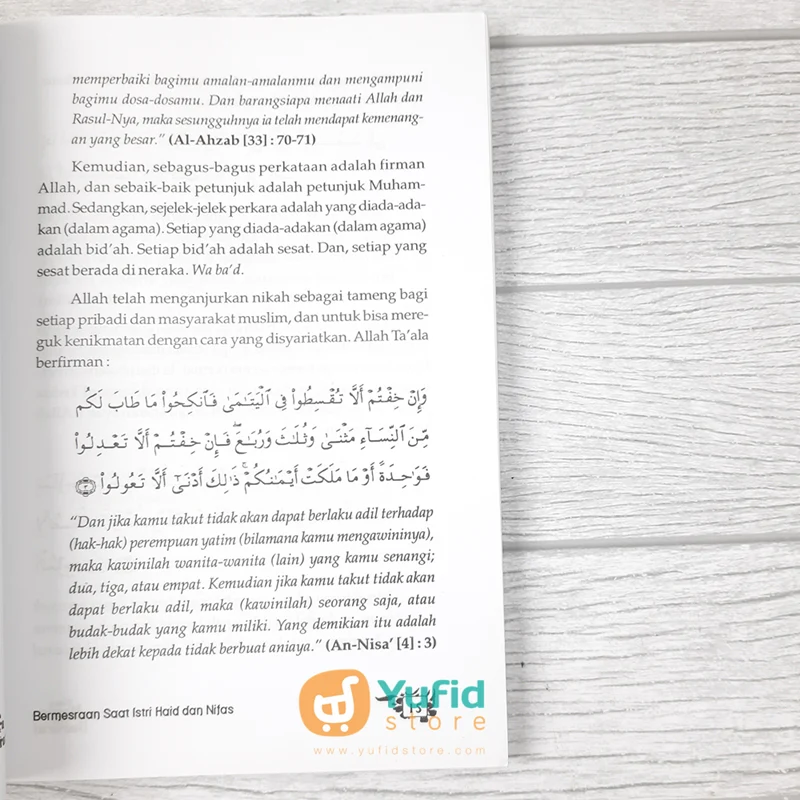 memperbaiki bagimu amalan-amalanmu dan mengampuni
bagimu dosa-dosamu. Dan barangsiapa menaati Allah dan
Rasul-Nya, maka sesungguhnya ia telah mendapat kemenang-
an yang besar.” (Al-Ahzab [33] : 70-71)
Kemudian, sebagus-bagus perkataan adalah firman
Allah, dan sebaik-baik petunjuk adalah petunjuk Muham-
mad. Sedangkan, sejelek-jelek perkara adalah yang diada-ada-
kan (dalam agama). Setiap yang diada-adakan (dalam agama)
adalah bid’ah. Setiap bid’ah adalah sesat. Dan, setiap yang
sesat berada di neraka. Wa ba’d.
Allah telah menganjurkan nikah sebagai tameng bagi
setiap pribadi dan masyarakat muslim, dan untuk bisa mere-
guk kenikmatan dengan cara yang disyariatkan. Allah Ta’ala
berfirman :
وَإِنْ خِفْتُمْ أَلَّا تُقْسِطُوا۟ فِى ٱلْيَتَـٰمَىٰ فَٱنكِحُوا۟ مَا طَابَ لَكُم
مِّنَ ٱلنِّسَآءِ مَثْنَىٰ وَثُلَـٰثَ وَرُبَـٰعَ ۖ فَإِنْ خِفْتُمْ أَلَّا تَعْدِلُوا۟
فَوَٰحِدَةً أَوْ مَا مَلَكَتْ أَيْمَـٰنُكُمْ ۚ ذَٰلِكَ أَدْنَىٰٓ أَلَّا تَعُولُوا۟ ٣
“Dan jika kamu takut tidak akan dapat berlaku adil terhadap
(hak-hak) perempuan yatim (bilamana kamu mengawininya),
maka kawinilah wanita-wanita (lain) yang kamu senangi;
dua, tiga, atau empat. Kemudian jika kamu takut tidak akan
dapat berlaku adil, maka (kawinilah) seorang saja, atau
budak-budak yang kamu miliki. Yang demikian itu adalah
lebih dekat kepada tidak berbuat aniaya.” (An-Nisa’ [4] : 3)
Bermesraan Saat Istri Haid dan Nifas
Yufid
store
www.yufidstore.com